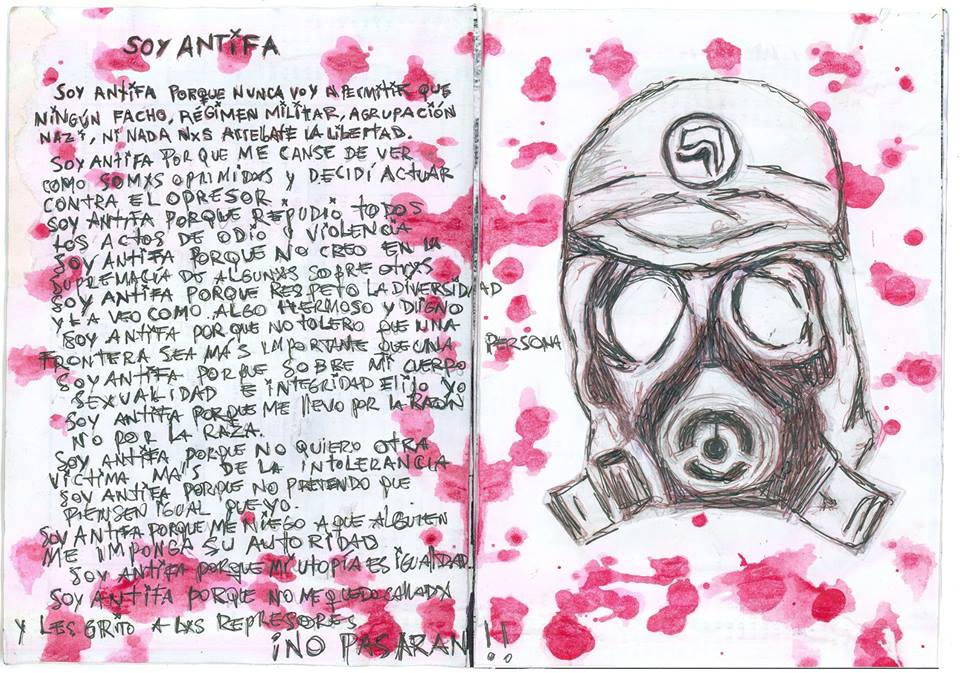 SOY ANTIFA
SOY ANTIFA PORQUE NUNCA VOY A PERMITIR QUE
NINGÚN FACHO, RÉGIMEN MILITAR, AGRUPACIÓN
NAZI, NI NADA NXS ARREBATE LA LIBERTAD.
SOY ANTIFA PORQUE ME CANSE DE VER
COMO SOMXS OPRIMIDXS Y DECIDÍ ACTUAR
CONTRA EL OPRESOR.
SOY ANTIFA PORQUE REPUDIO TODOS
LOS ACTOS DE ODIO Y VIOLENCIA
SOY ANTIFA PORQUE NO CREO EN LA
SUPREMACÍA DE ALGUNXS SOBRE OTRXS
SOY ANTIFA PORQUE RESPETO LA DIVERSIDAD
Y LA VEO COMO ALGO HERMOSO Y DIGNO
SOY ANTIFA PORQUE NO TOLERO QUE UNA
FRONTERA SEA MÁS IMPORTANTE QUE UNA PERSONA
SOY ANTIFA PORQUE SOBRE MI CUERPO
SEXUALIDAD E INTEGRIDAD ELIJO YO
SOY ANTIFA PORQUE ME LLEVO POR LA RAZÓN
NO POR LA RAZA.
SOY ANTIFA PORQUE NO QUIERO OTRA
VÍCTIMA MÁS DE LA INTOLERANCIA
SOY ANTIFA PORQUE NO PRETENDO QUE
PIENSEN IGUAL QUE YO.
SOY ANTIFA PORQUE ME NIEGO A QUE ALGUIEN
ME IMPONGA SU AUTORIDAD
SOY ANTIFA PORQUE MI UTOPÍA ES IGUALDAD.
SOY ANTIFA PORQUE NO ME QUEDO CALLADX
Y LES GRITO A LXS REPRESORES
¡NO PASARAN!!